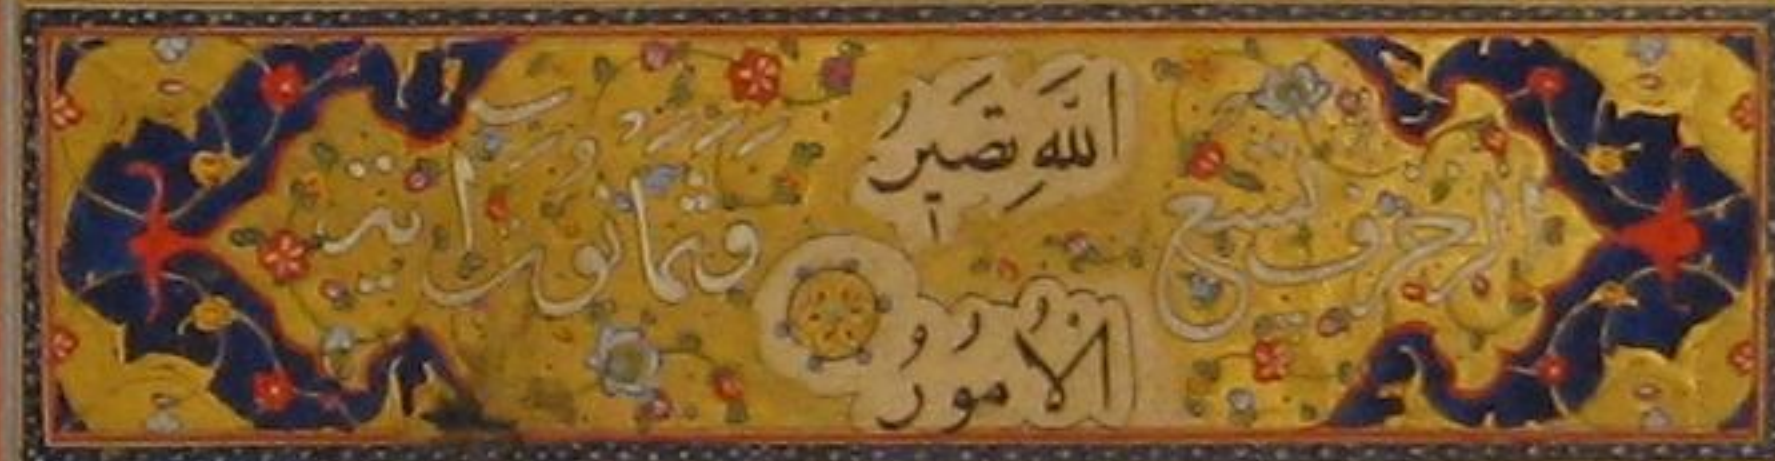 اللَّهِ تَصِيرُ
الاُمُورُ
الزخرف تسع وثمانون اية